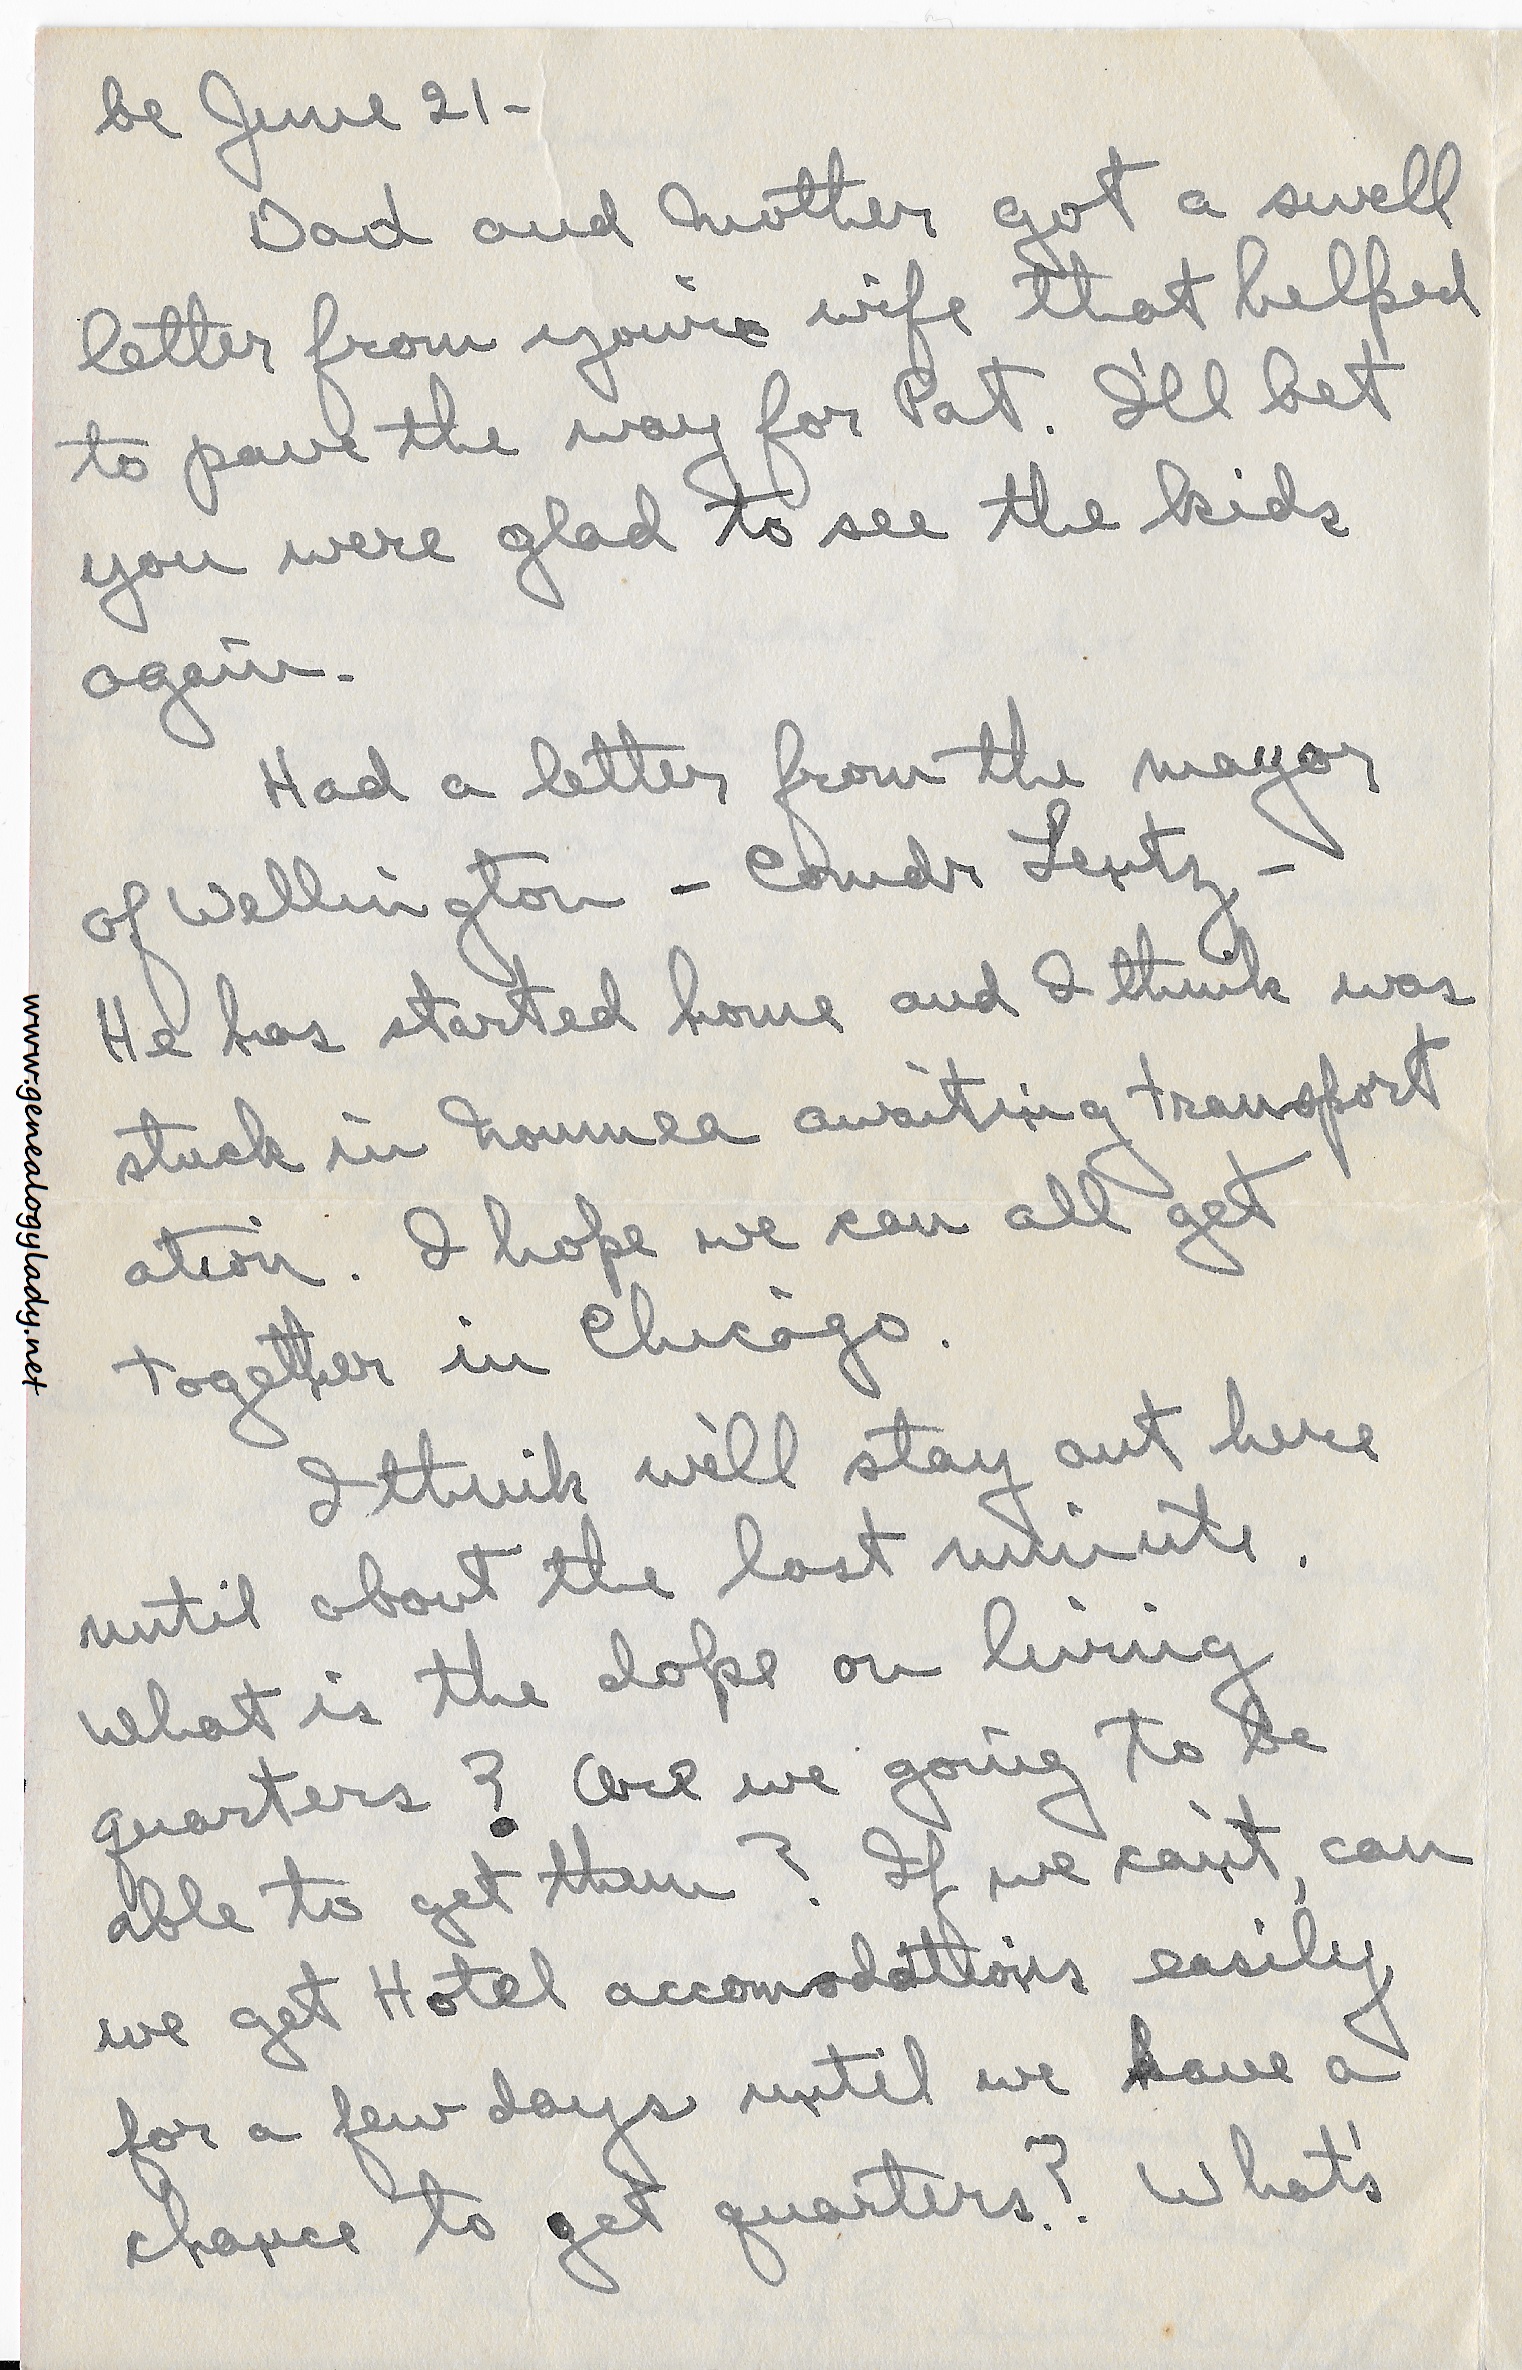 be June 21-
Dad and Mother got a swell
letter from your wife that helped
to pave the way for Pat. I'll bet
you were glad to see the kids
again.
Had a letter from the mayor
of Wellington - Comdr Lentz -
He has started home and I think was
stuck in Noumea awaiting transport
ation. I hope we can all get
together in Chicago.
I think we'll stay out here
until about the last minute.
What is the dope on living
quarters? Are we going to be
able to get them? If we can't, can
we get Hotel accomodations easily
for a few days until we have a
chance to get quarters?. What's
www.genealogylady.net